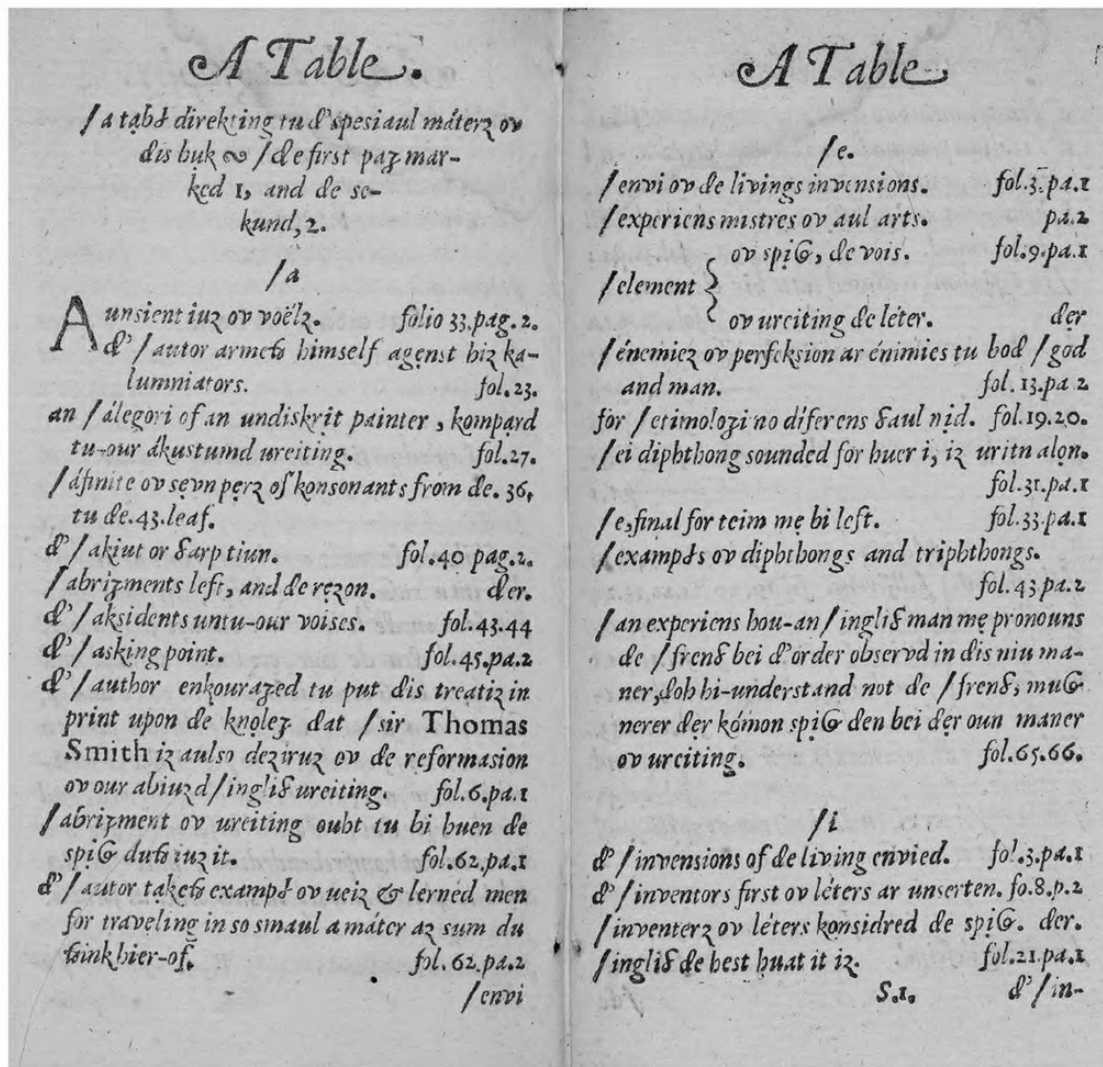 A Table.
/a tabł direkting tu đ'spesiaul máterz ov
đis buk ∾ /đe first paʒ mar-
ked 1, and đe se-
kund, 2.
/a
Aunsient iuz ov voëlz. folio 33.pag.2.
đ'/autor armeþ himself agenst hiz ka-
lumniators. fol.23.
an /álegori of an undiskrit painter, kompạrd
tu-our ákustumd ureiting. fol.27.
/áfinite ov sẹvn pẹrz of konsonants from đe.36,
tu đe.43.leaf.
đ'/akiut or 8arp tiun. fol.40 pag.2.
/abriʒments left, and đe rẹzon. đer.
đ'/aksidents untu-our voises. fol.43.44
đ'/asking point. fol.45.pa.2
đ'/author enkouraʒed tu put đis treatiz in
print upon đe knọleʒ đat /sir Thomas
Smith iz aulso deziruz ov đe reformasion
ov our abiuzd /ingli8 ureiting. fol.6.pa.1
/abriʒment ov ureiting ouht tu bi huen đe
spịG duþ iuz it. fol.62.pa.1
đ'/autor takeþ exampł ov ueiz & lerned men
for traveling in so smaul a máter az sum du
þink hier-of. fol. 62.pa.2
/envi
A Table
/e.
/envi ov đe livings invensions. fol.3.pa.1
/experiens mistres ov aul arts. pa.2
ov spịG, đe vois. fol.9.pa.1
/element {
ov ureiting đe léter. đer
/énemiez ov perfeksion ar énimies tu bođ /god
and man. fol. 13.pa 2
for /etimoloʒi no díferens 8aul nịd. fol.19.20.
/ei diphthong sounded for huer i, iz uritn alọn.
fol.31.pa.1
/e, final for teim mẹ bi left. fol.33.pa.1
/exampłs ov diphthongs and triphthongs.
fol.43.pa.2
/an experiens hou-an /ingli8 man mẹ pronouns
đe /fren8 bei đ'order observd in đis niu ma-
ner, đoh hi-understand not đe /fren8, muG
nerer đẹr kómon spịG đen bei đẹr oun maner
ov ureiting. fol.65.66.
/i
đ'/invensions of đe living envied. fol.3.pa.1
đ'/inventors first ov léters ar unserten. fo.8.p.2
/inventerz ov léters konsidred đe spịG. đer.
/ingli8 đe best huat it iz. fol.21.pa.1
S.1. đ'/in-